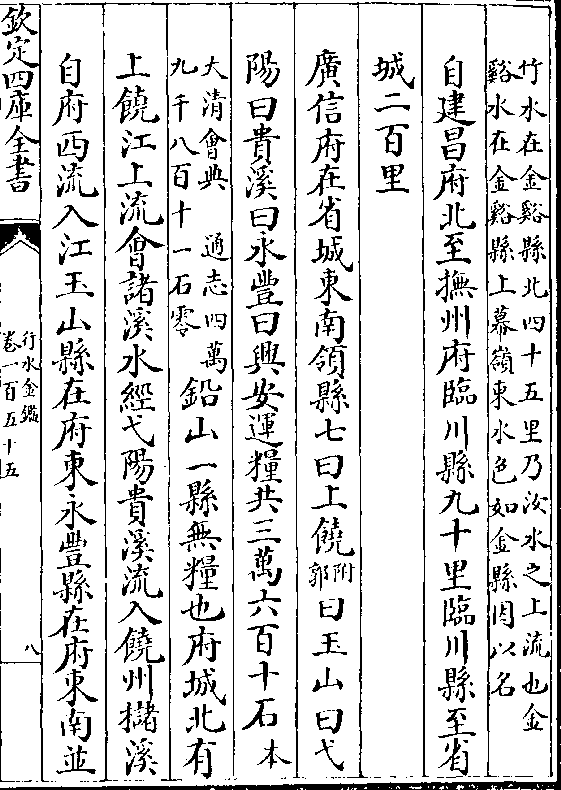 竹水在金谿縣北四十五里乃汝水之上流也金
谿水在金谿縣上幕嶺東水色如金縣因以名
自建昌府北至撫州府臨川縣九十里臨川縣至省
城二百里
廣信府在省城東南領縣七曰上饒附郭曰玉山曰弋
陽曰貴溪曰永豐曰興安運糧共三萬六百十石本
大清會典　通志四萬
九千八百十一石零
鉛山一縣無糧也府城北有
上饒江上流會諸溪水經弋陽貴溪流入饒州櫧溪
自府西流入江玉山縣在府東永豐縣在府東南並
欽定四庫全書
行水金鑑
卷一百五十五
八